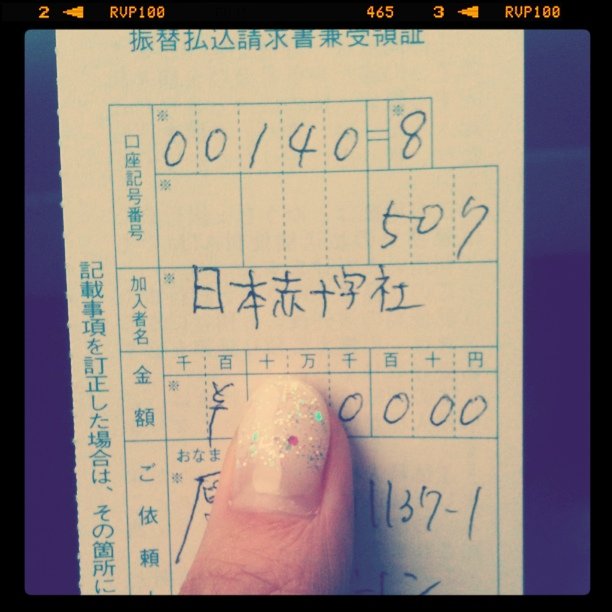 2 RVP100 465 3 RVP100
振替払込請求書兼受領証
口座記号番号
※ 00140 ※ 8
※ 507
加入者名
※ 日本赤十字社
金額
千 百 十 万 千 百 十 円
※ ¥ 0000
おなま
ご依頼
※
1137-1
記載事項を訂正した場合は、その箇所に